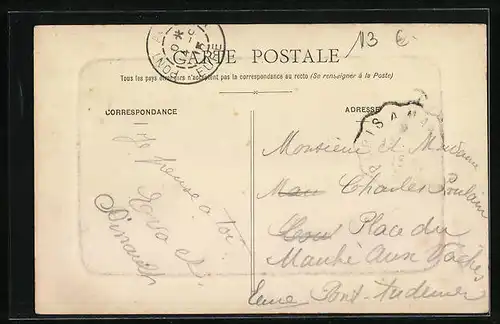 13 €
CARTE POSTALE
Tous les pays étrangers n'acceptent pas la correspondance au recto (Se renseigner à la Poste)
CORRESPONDANCE
ADRESSE
Je pense a toi
Monsieur et Madame
Charles Poulain
Place du
Marché Aux Vâches
Pont-Audemer
PONT A
EURE
PARIS A